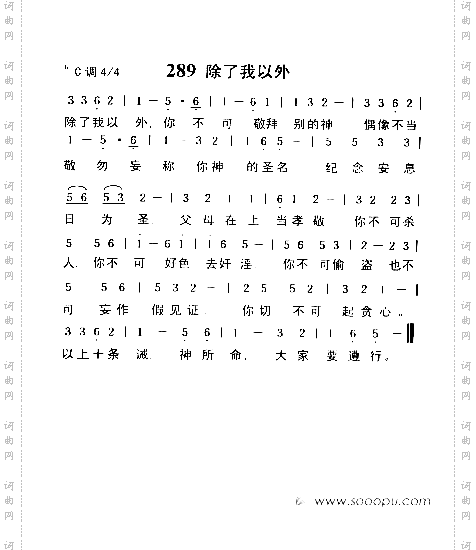 ♭C调4/4 289 除了我以外
3 3 6 2 | 1 — 5 · 6 | 1 — 6 1 | 1 3 2 | 3 2 — | 3 3 6 2 |
除了我以 外, 你 不 可 敬拜 别的神 偶像不当
1 — 5 · 6 | 1 — 3 2 | 1 1 6 5 — | 5 5 3 3 |
敬 勿 妄 称 你神 的圣名 纪 念 安 息
5 6 5 3 2 — | 3 2 1 1 | 6 1 2 — | 3 2 2 3 |
日 为 圣. 父 母 在 上 当 孝 敬 你 不 可 杀
5 5 6 1 | 1 — 6 1 | 1 6 5 — | 5 6 5 3 | 2 — 2 3 |
人. 你不 可 好色 去奸淫. 你不 可偷 盗 也不
5 5 6 | 5 3 2 — | 2 5 5 2 | 3 2 1 — |
可 妄作 假见证. 你切 不可 起贪心。
3 3 6 2 | 1 — 5 6 | 1 — 3 2 | 1 6 5 — ‖
以上十条 诫, 神所 命, 大家 要 遵行。
www.sooopu.com
词曲网
词曲网
词曲网
词曲网
词曲网
词曲网
词曲网
词曲网
词曲网
词曲网
词曲网
词曲网